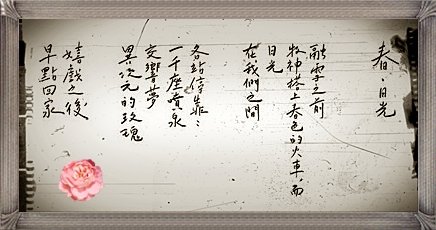 春·日光
融雪之前
牧神搭上春色的火車,而
日光
在我們之間
各站停靠:
一千座噴泉
交響夢
異次元的玫瑰
嬉戲之後
早點回家